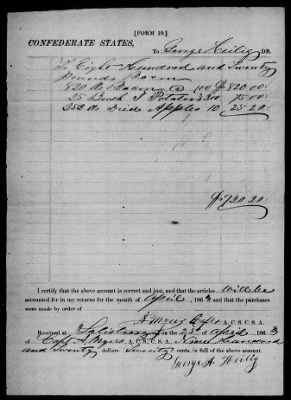 [FORM 19.]
CONFEDERATE STATES,
To George Heilig DR.
To Eight Hundred and Twenty
Pounds Bacon
820 lbs Bacon @ 100 $820.00
25 Bush S Potatoes 300 75.00
252 lbs Dried Apples 10 25 20
$920 20
I certify that the above account is correct and just, and that the articles will be
accounted for in my returns for the month of April 1863 and that the purchases
were made by order of
A Myers Capt A. C. S. C. S. A.
Received at Salisbury the 22 of April 1863
of Capt A. Myers A. C. S. C. S. A. Nine Hundred
and Twenty dollars Twenty cents, in full of the above account.
George A. Heilig